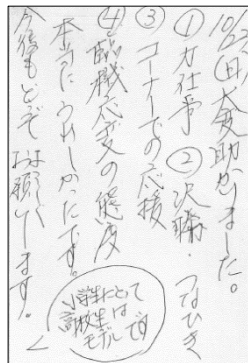 10/22(日)大変助かりました。
①力仕事 ②沢踊・つなひき
③コーナーでの応援
④臨機応変の態度
本当にうれしかったです。
今後もどうぞお願いします。
小学生にとって
高校生は
モデルです